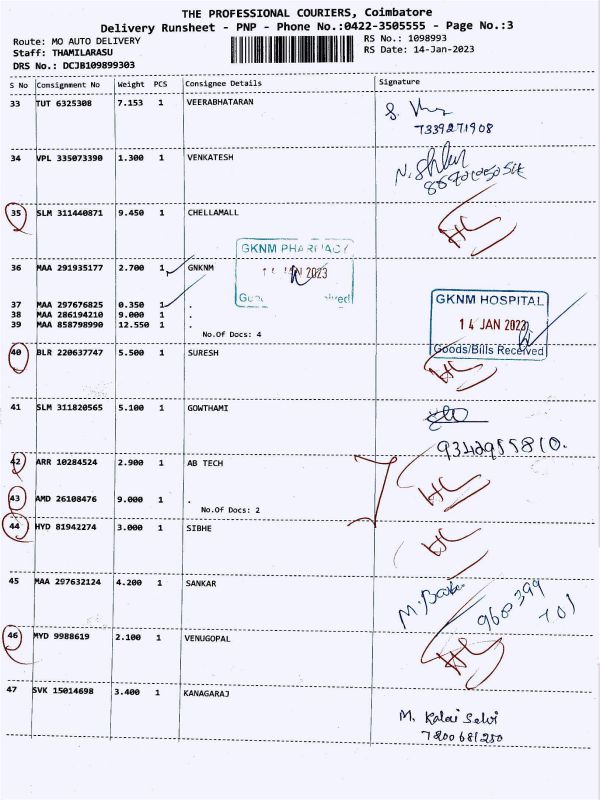 THE PROFESSIONAL COURIERS, Coimbatore
Delivery Runsheet - PNP - Phone No.:0422-3505555 - Page No.:3
Route: MO AUTO DELIVERY
RS No.: 1098993
Staff: THAMILARASU
RS Date: 14-Jan-2023
DRS No.: DCJB109899303
S No Consignment No Weight PCS Consignee Details Signature
33 TUT 6325308 7.153 1 VEERABHATARAN
7339271908
34 VPL 335073390 1.300 1 VENKATESH
35 SLM 311440871 9.450 1 CHELLAMALL
GKNM PHARMACY
36 MAA 291935177 2.700 1 GNKNM
14 JAN 2023
37 MAA 297676825 0.350 1 .
38 MAA 286194210 9.000 1 .
39 MAA 858798990 12.550 1 .
No.Of Docs: 4
GKNM HOSPITAL
14 JAN 2023
Goods/Bills Received
40 BLR 220637747 5.500 1 SURESH
41 SLM 311820565 5.100 1 GOWTHAMI
9342955810.
42 ARR 10284524 2.900 1 AB TECH
43 AMD 26108476 9.000 1 .
No.Of Docs: 2
44 HYD 81942274 3.000 1 SIBHE
45 MAA 297632124 4.200 1 SANKAR
46 MYD 9988619 2.100 1 VENUGOPAL
47 SVK 15014698 3.400 1 KANAGARAJ
M. Kalai Selvi
7200681250